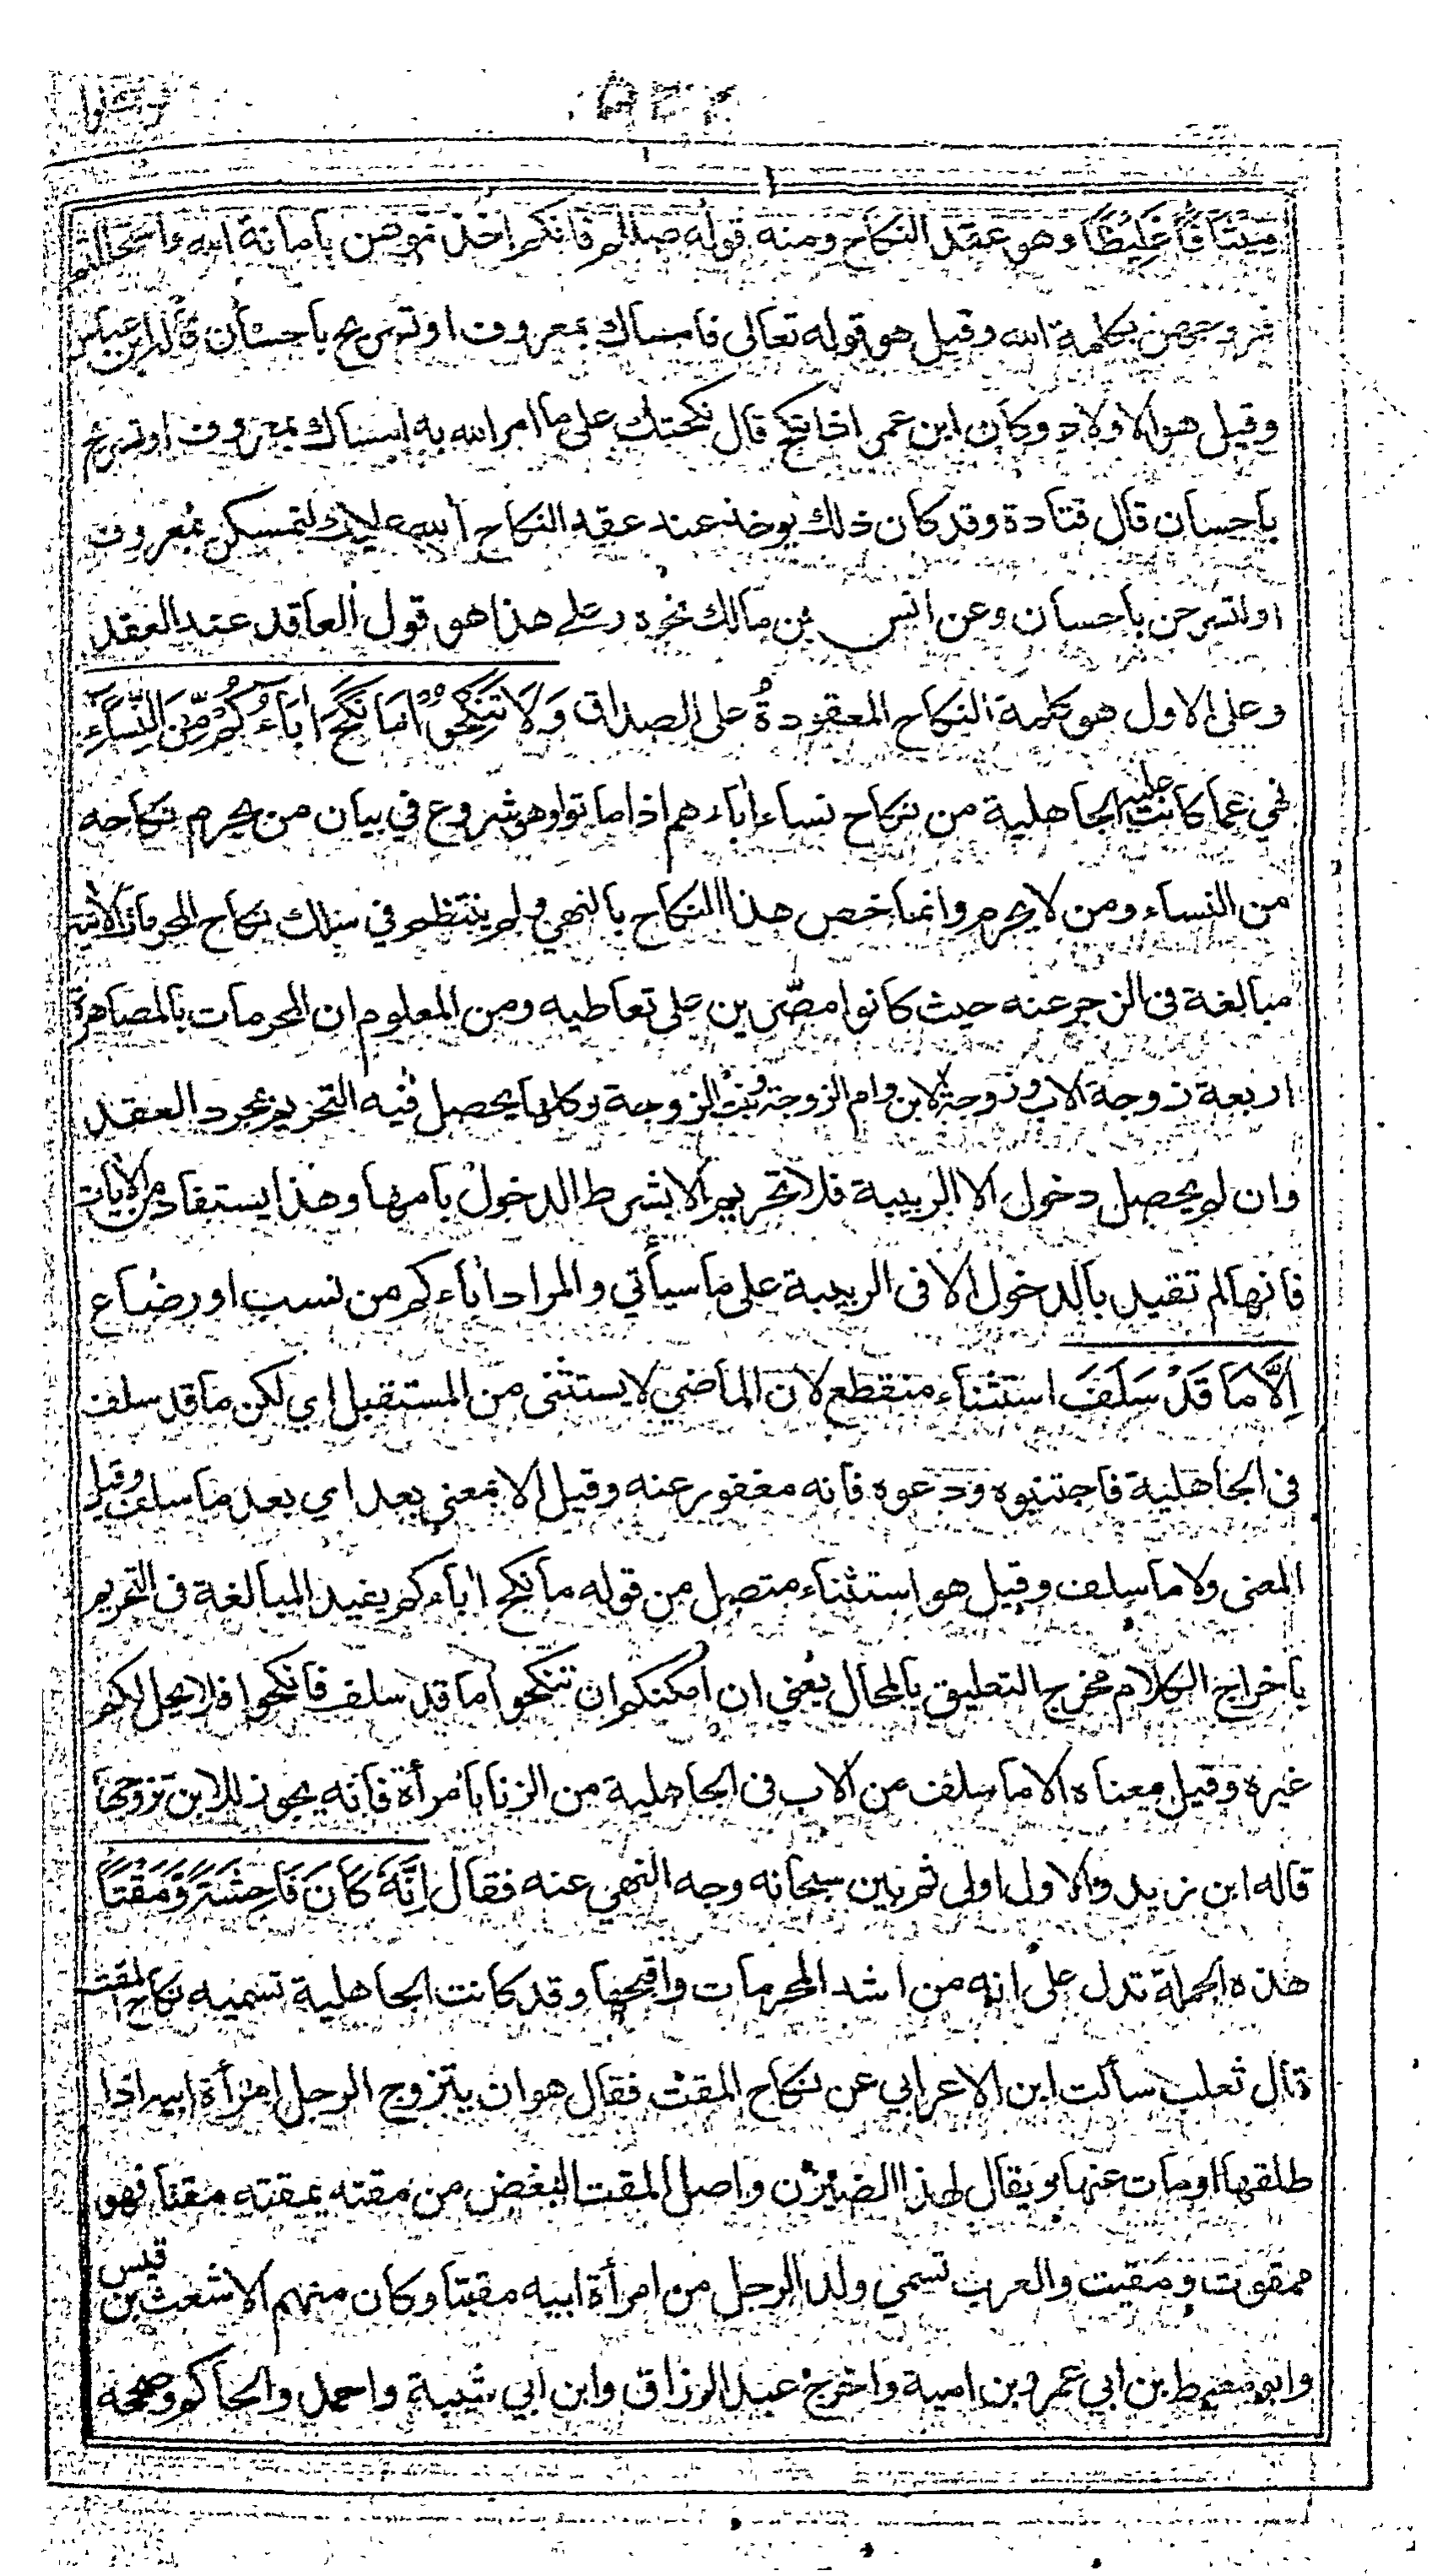 مِّيْثَاقًا غَلِيْظًا وهو عقد النكاح ومنه قوله صللم فانكم اخذتموهن بامانة الله واستحللتم
فروجهن بكلمة الله وقيل هو قوله تعالى فامساك بمعروف او تسريح باحسان قاله ابن عباس
وقيل هو الاولاد وكان ابن عمر اذا نكح قال نكحتك على ما امر الله به امساك بمعروف او تسريح
باحسان قال قتادة وقد كان ذلك يوخذ عند عقد النكاح آلله عليك لتمسكن بمعروف
او لتسرحن باحسان وعن انس بن مالك نحوه هذا هو قول العاقد عند العقد
وعلى الاول هو كلمة النكاح المعقودة على الصداق وَلَا تَنْكِحُوْا مَا نَكَحَ اٰبَآؤُكُمْ مِّنَ النِّسَآءِ
نهي عما كانت عليه الجاهلية من نكاح نساء اٰباءهم اذا ماتوا وهو شروع في بيان من يحرم نكاحه
من النساء ومن لا يحرم وانما خص هذا النكاح بالنهي ولم ينتظم في سلك نكاح المحرمات الاتية
مبالغة في الزجر عنه حيث كانوا مصرّين على تعاطيه ومن المعلوم ان المحرمات بالمصاهرة
اربعة زوجة الاب وزوجة الابن وام الزوجة وبنت الزوجة وكلها يحصل فيه التحريم بمجرد العقد
وان لم يحصل دخول الا الربيبة فلا تحريم الا بشرط الدخول بامها وهذا يستفاد من الاٰيات
فانها لم تقيد بالدخول الا في الربيبة على ما سيأتي والمراد اٰباءكم من نسب او رضاع
اِلَّا مَا قَدْ سَلَفَ استثناء منقطع لان الماضي لا يستثنى من المستقبل اي لكن ما قد سلف
في الجاهلية فاجتنبوه ودعوه فانه مغفور عنه وقيل الا بمعنى بعد اي بعد ما سلف وقيل
المعنى ولا ما سلف وقيل هو استثناء متصل من قوله ما نكح اٰباءكم يفيد المبالغة في التحريم
باخراج الكلام مخرج التعليق بالمحال يعني ان امكنكم ان تنكحوا ما قد سلف فانكحوا فلا يحل لكم
غيره وقيل معناه الا ما سلف من الاب في الجاهلية من الزنا بامرأة فانه يجوز للابن تزوجها
قاله ابن زيد والاول اولى ثم بين سبحانه وجه النهي عنه فقال اِنَّهٗ كَانَ فَاحِشَةً وَّمَقْتًا
هذه الجملة تدل على انه من اشد المحرمات واقبحها وقد كانت الجاهلية تسميه نكاح المقت
قال ثعلب سألت ابن الاعرابي عن نكاح المقت فقال هو ان يتزوج الرجل امرأة ابيه اذا
طلقها او مات عنها ويقال لهذا الضيزن واصل المقت البغض من مقته يمقته مقتا فهو
ممقوت ومقيت والعرب تسمي ولد الرجل من امرأة ابيه مقيتا وكان منهم الاشعث بن قيس
وابو معيط بن ابي عمرو بن امية واخرج عبد الرزاق وابن ابي شيبة واحمد والحاكم وصححه